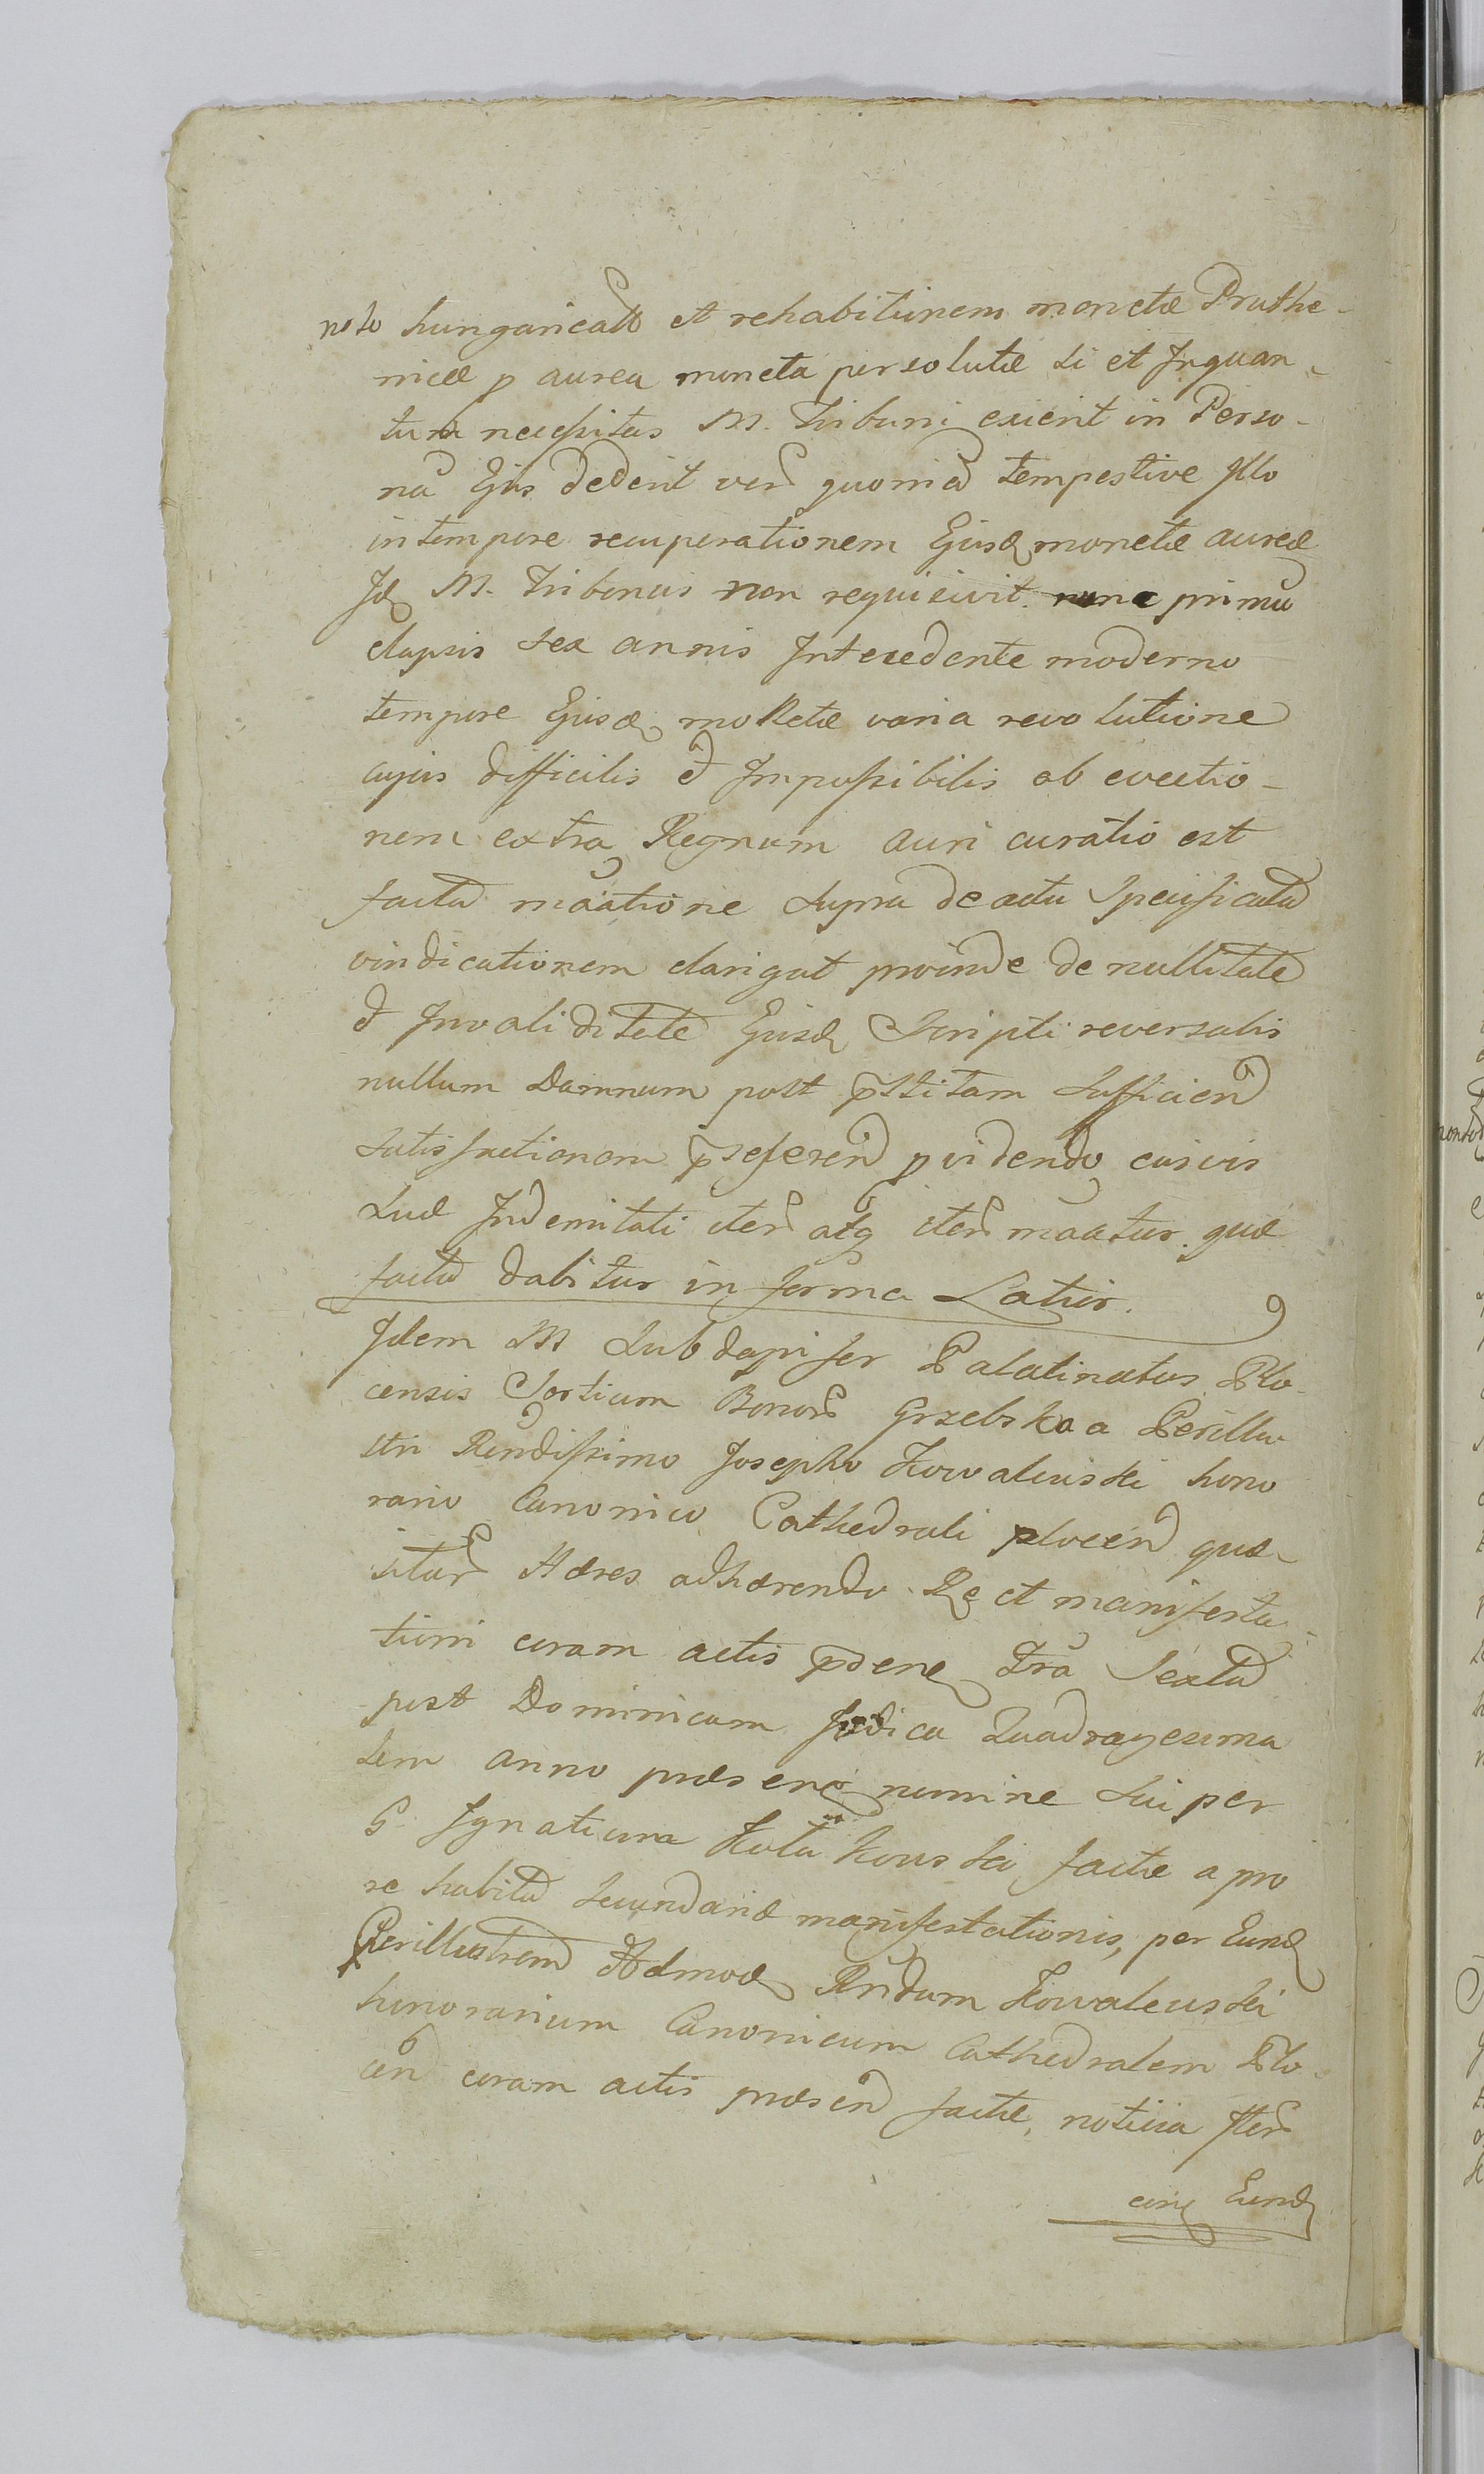 no to hungaricato et rehabitionem monetæ Pruthe-
nicæ p aurea moneta persolutæ si et Inquan-
tum necessitas M. Tribuni exierit in Perso-
na Ejus dederit veru quonia tempestive Illo
in tempore recuperationem Ejusd monetæ aureæ
Id M. Tribunus non requisivit. nunc primu
elapsis sex annis Intecedente moderno
tempore Ejusd monetæ varia revolutione
cujus difficilis et Impossibilis ob evectio-
nem extra Regnum auri curatio est
facta maatione supra de actu specificata
vindicationem clarigat proinde de nullitate
et Invaliditate Ejusd Scripti reversalis
nullum Damnum post pstitam Sufficien
satisfactionem pseferen pvidendo cuivis
suæ Indemnitati iteru atq iteru maatur. quæ
facta dabitur in forma Latior.
Idem M Subdapifer Palatinatus Plo-
censis Sortium Bonoru Grzebska a Perillu
stri Rendissimo Josepho Kowalewski hono
rario Canonico Cathedrali plocen quæ-
sitaru Hæres adhærendo Re et manifesta-
tioni coram actis pdene Fra Sexta
post Dominicam Judica Quadragesima
lem anno præsene nomine sui per
G Ignatium Kutu kowski factæ a pro
se habita secundariæ manifestationis, per Eund
Perillustrem Admod Rndum Kowalewski
honorarium Canonicum Cathedralem Plo-
cen coram actis præsen factæ, noticia Iteru
cony Eund